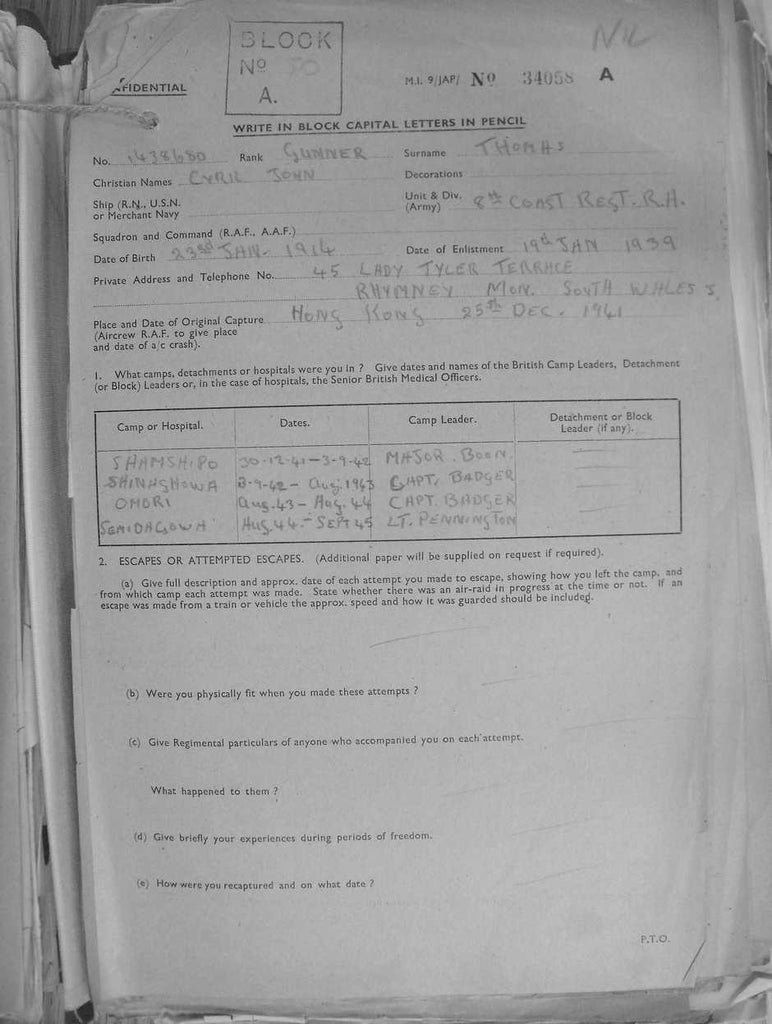 NIL
BLOCK
Nº
A.
FIDENTIAL
M.I. 9/JAP/ Nº 34058 A
WRITE IN BLOCK CAPITAL LETTERS IN PENCIL
No. 1438680 Rank GUNNER Surname THOMAS
Christian Names CYRIL JOHN Decorations
Ship (R.N., U.S.N. or Merchant Navy
Unit & Div. (Army) 8th COAST REGT. R.A.
Squadron and Command (R.A.F., A.A.F.)
Date of Birth 23rd JAN. 1914 Date of Enlistment 19th JAN 1939
Private Address and Telephone No. 45 LADY TYLER TERRACE
RHYMNEY MON. SOUTH WALES
Place and Date of Original Capture HONG KONG 25th DEC. 1941
(Aircrew R.A.F. to give place
and date of a/c crash).
1. What camps, detachments or hospitals were you in ? Give dates and names of the British Camp Leaders, Detachment
(or Block) Leaders or, in the case of hospitals, the Senior British Medical Officers.
Camp or Hospital. Dates. Camp Leader. Detachment or Block Leader (if any).
SHAMSHIPO 30-12-41-3-9-42 MAJOR. BOON.
SHINAGHOWA 3-9-42 - Aug. 1943 CAPT. BADGER
OMORI Aug. 43 - Aug. 44 CAPT. BADGER
SENIDAGOWA Aug. 44. - SEPT 45 LT. PENNINGTON
2. ESCAPES OR ATTEMPTED ESCAPES. (Additional paper will be supplied on request if required).
(a) Give full description and approx. date of each attempt you made to escape, showing how you left the camp, and
from which camp each attempt was made. State whether there was an air-raid in progress at the time or not. If an
escape was made from a train or vehicle the approx. speed and how it was guarded should be included.
(b) Were you physically fit when you made these attempts ?
(c) Give Regimental particulars of anyone who accompanied you on each attempt.
What happened to them ?
(d) Give briefly your experiences during periods of freedom.
(e) How were you recaptured and on what date ?
P.T.O.